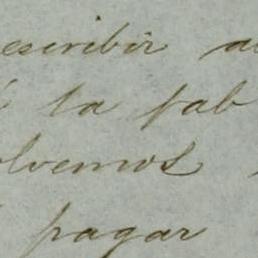 escribir a
la fab
olvemos
pagar